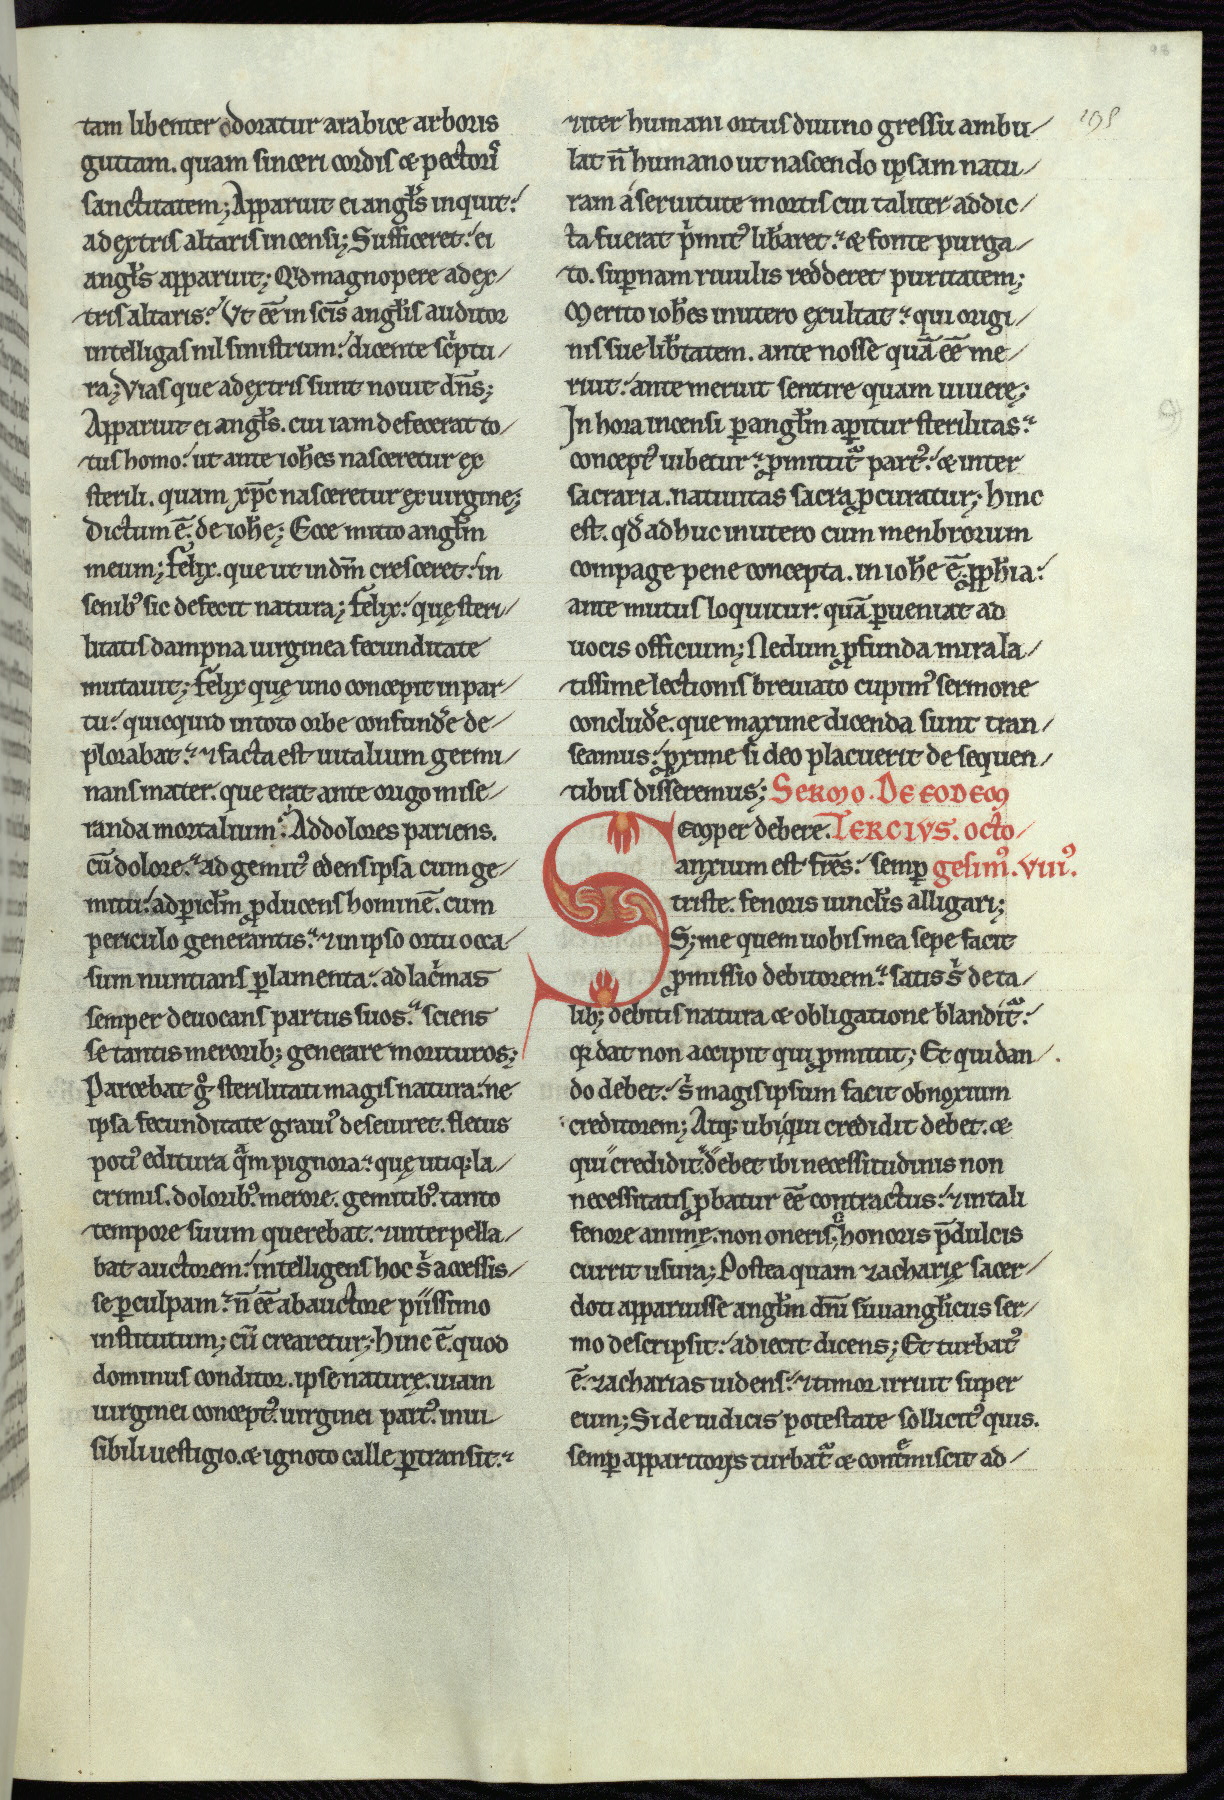 tam libenter odoratur arabice arboris
guttam. quam sinceri cordis & pectorꝭ
sanctitatem; Apparuit ei angłs inquit:
adextris altaris incensi; Sufficeret: ei
angłs apparuit; Qd magnopere adex/
tris altaris? Vt eē in scīs angłis auditor
intelligas nil sinistrum: dicente scͥptu/
ra; Vias que adextris sunt nouit dn̄s;
Apparuit ei angłs. cui iam defecerat to/
tus homo: ut ante ioħes nasceretur ex
sterili. quam xp̄c nasceretur ex uirgine;
Dictum ē. de ioħe; Ecce mitto angłm
meum; felix. que ut indm̄ cresceret: in
senibꝰ sic defecit natura; felix: quę steri/
litatis dampna uirginea fecunditate
mutauit; felix quę uno concepit inpar/
tu: quicquid intoto orbe confund̉e de/
plorabat: ⁊ facta est uitalium germi/
nans mater. que erat ante origo mise/
randa mortalium: Addolores pariens.
cū dolore: ad gemitꝰ edens ipsa cum ge/
mitu: ad ꝑicłm ꝓducens hominē. cum
periculo generantis: ⁊ in ipso ortu occa/
sum nuntians ꝑ lamenta: ad lac̉mas
semper deuocans partus suos: sciens
se tantis merorib; generare morituros;
Parcebat gͦ sterilitati magis natura: ne
ipsa fecunditate grauiꝰ deseuiret. fletus
potiꝰ editura qͣm pignora: quę utiq; la/
crimis. doloribꝰ. merore. gemitibꝰ. tanto
tempore suum querebat. ⁊ interpella/
bat auctorem: intelligens hoc s̉ accessis/
se ꝑ culpam: n̄ eē ab auctore piissimo
institutum; cū crearetur; Hinc ē. quod
dominus conditor. ipse naturę. uiam
uirginei conceptꝰ. uirginei partꝰ. inui
sibili uestigio. & ignoto calle ꝑtransit:
⁊ iter humani ortus diuino gressu ambu/
lat n̄ humano ut nascendo ipsam natu/
ram á seruitute mortis cui taliter addic/
ta fuerat p̉mitꝰ lib̉aret: & fonte purga/
to. suꝑnam riuulis redderet puritatem;
Merito ioħes in utero exultat: qui origi/
nis sue lib̉tatem. ante nosse quā eē me/
ruit: ante meruit sentire quam uiuere;
In hora incensi ꝑ angłm aꝑitur sterilitas:
conceptꝰ iubetur: ꝓmittit᷑ partꝰ: & inter
sacraria. natiuitas sacra ꝓcuratur; Hinc
est. qd̉ adhuc in utero cum menbrorum
compage pene concepta. in ioħe ē. ꝓpħia:
ante mutus loquitur. quā ꝑueniat ad
uocis officium; Nedum ꝓfunda mira la/
tissime lectionis breuiato cupimꝰ sermone
conclud̉e. que maxime dicenda sunt tran/
seamus: ꝓxime si deo placuerit de sequen/
tibus disseremus; SERMO. DE EODEM
Semper debere. TERCIVS. octo/
anxium est fr̄es: semꝑ gesimꝰ. viiiꝰ.
triste. fenoris uincłis alligari;
S; me quem uobis mea sepe facit
ꝓmissio debitorem: satis s̉ de ta/
lib; debitis natura & obligatione blandit᷑:
qꝛ dat non accipit qui ꝓmittit; Et qui dan/
do debet: s̉ magis ipsum facit obnoxium
creditorem; Atq; ubi qui credidit debet. &
qui credidit debet ibi necessitudinis non
necessitatis ꝓbatur eē contractus: ⁊ in tali
fenore animę. non oneris; honoris p̄dulcis
currit usura; Postea quam zacharię sacer/
doti apparuisse angłm dn̄i s̉ euuangłicus ser/
mo descripsit: adiecit dicens; Et turbatꝰ
ē. zacharias uidens: ⁊ timor irruit super
eum; Si de iudicis potestate sollicitꝰ quis.
semꝑ apparitoris turbat᷑ & contͤmiscit ad/